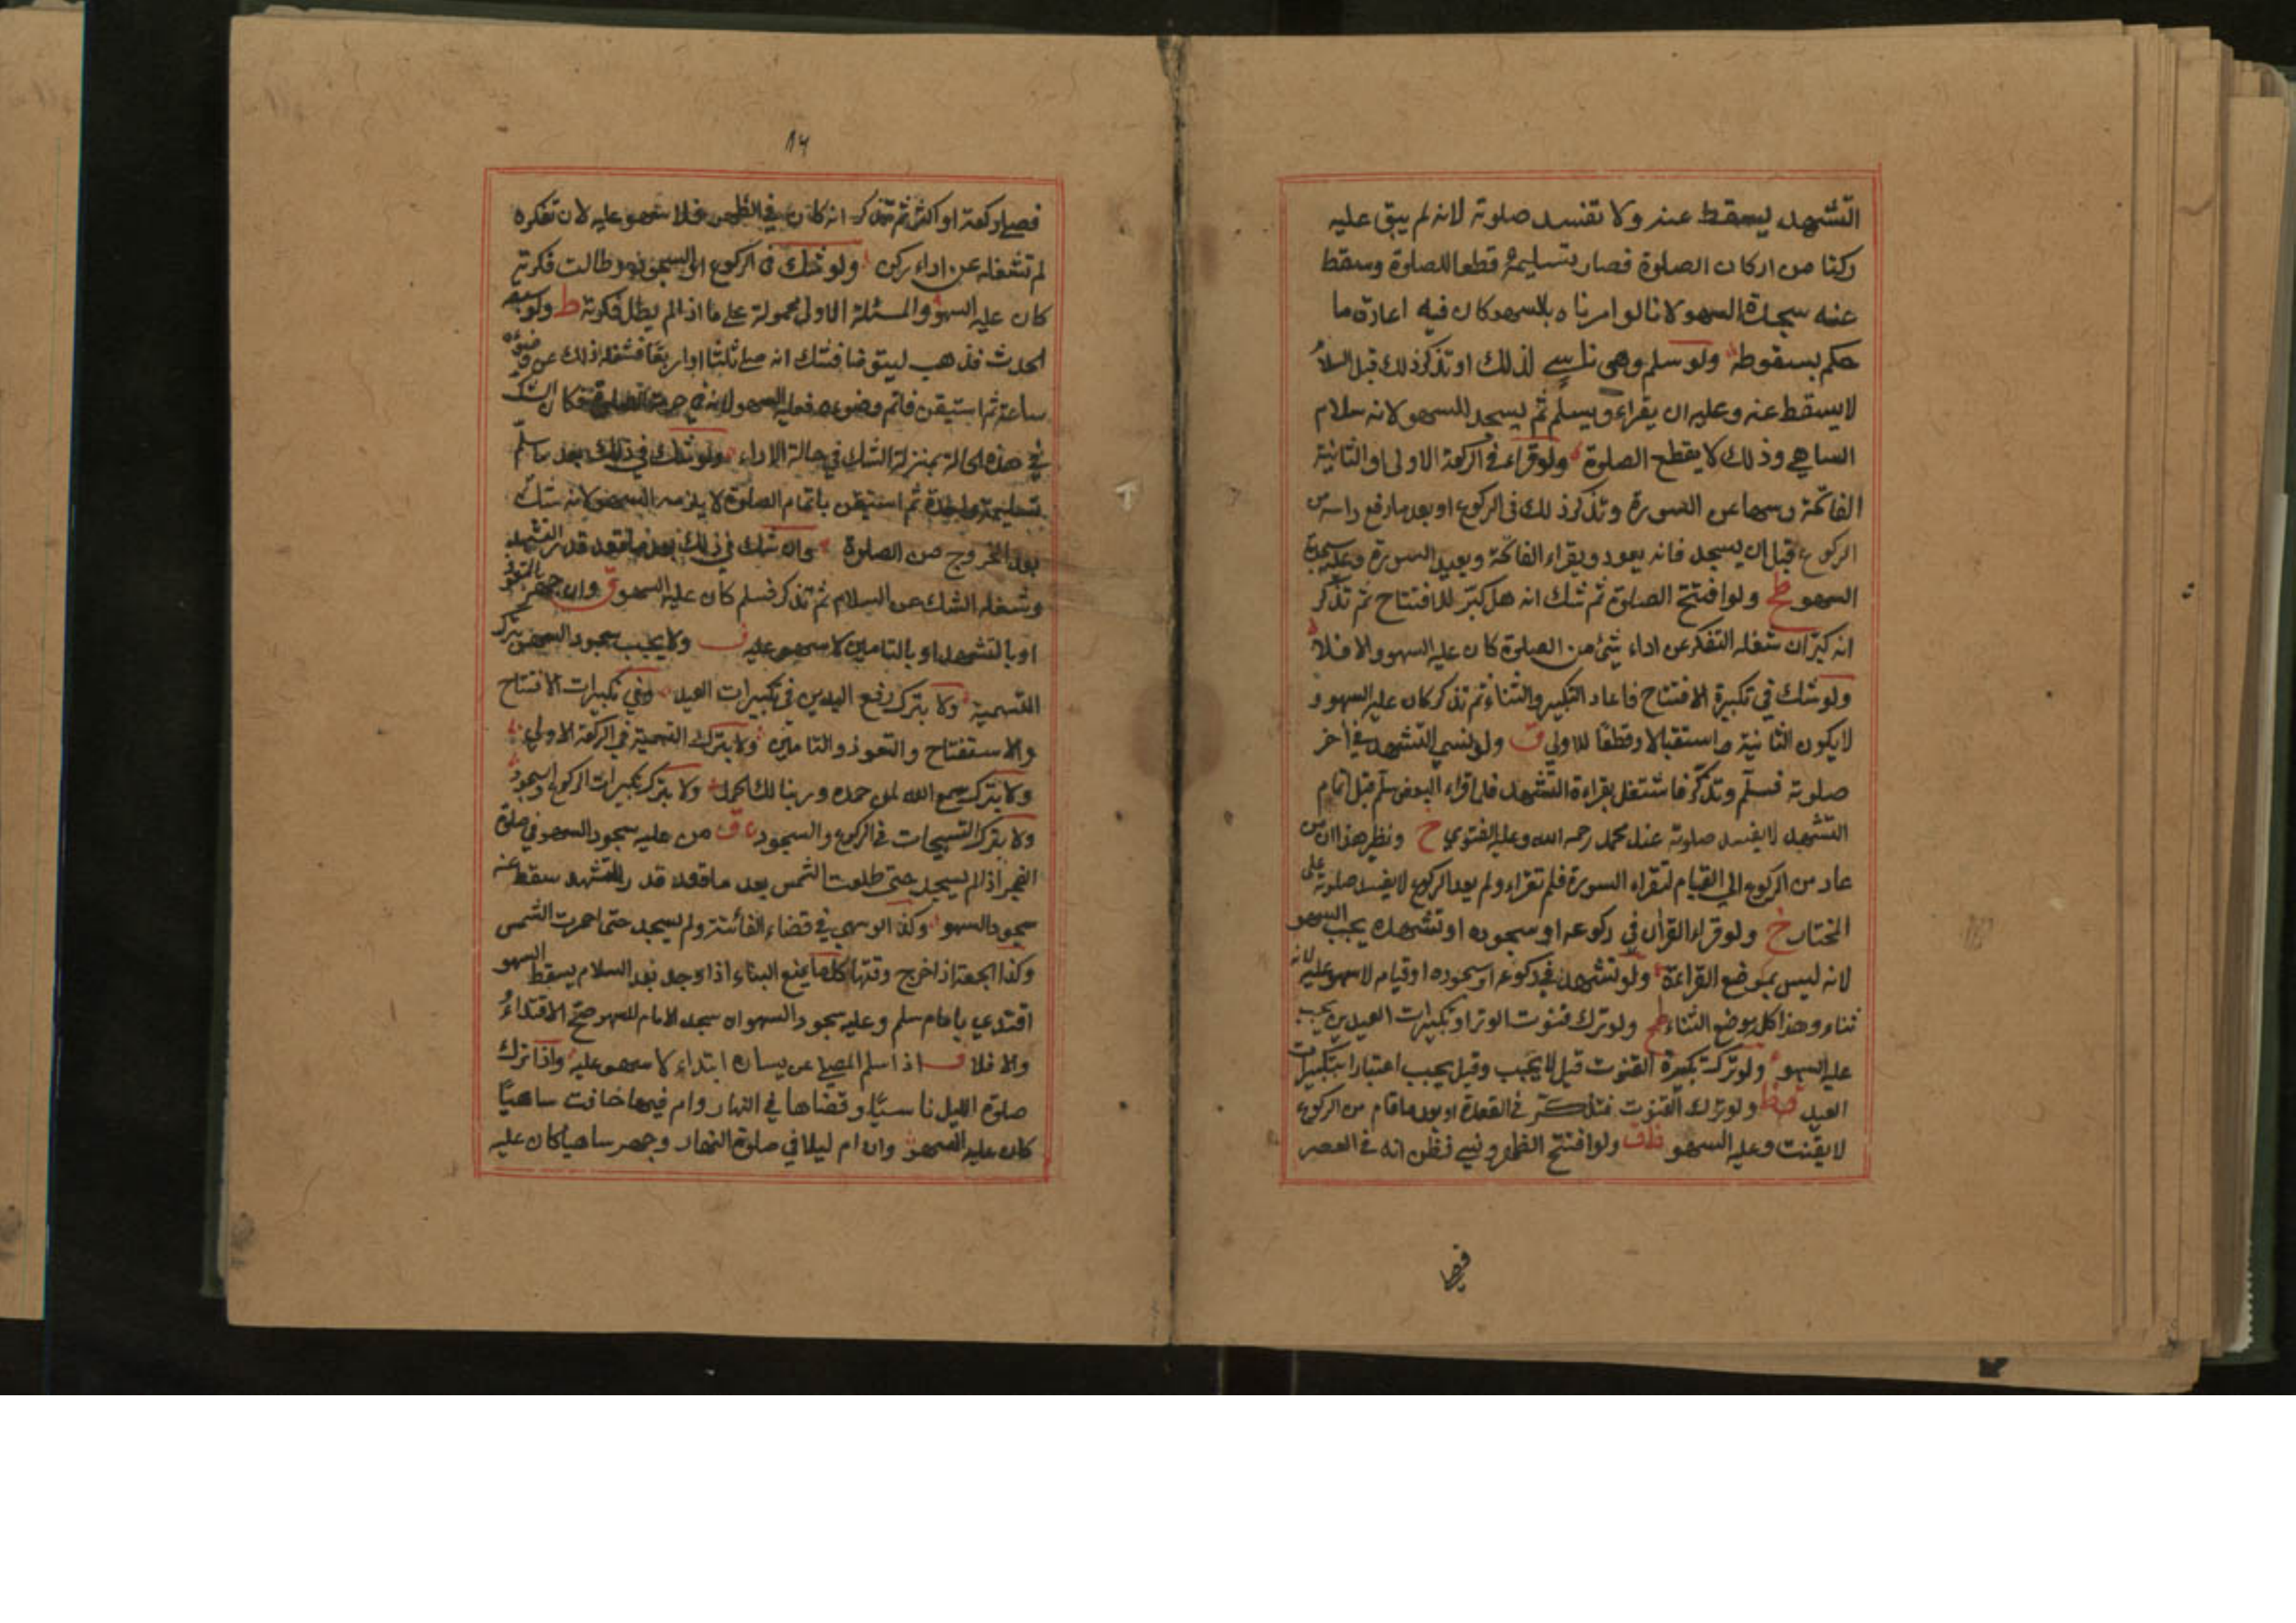 التشهد ليسقط عنه ولا تفسد صلوته لانه لم يبق عليه
ركنا من اركان الصلوة فصار بتسليمه قطعا للصلوة وسقط
عنه سجدة السهو لانا لو امرناه بالسهو كان فيه اعادة ما
حكم بسقوطه ولو سلم وهى ناسي لذلك او تذكر ذلك قبل السلام
لا يسقط عنه وعليه ان يقراء ويسلم ثم يسجد للسهو لانه سلام
الساهي وذلك لا يقطع الصلوة ولو قراء في الركعة الاولى او الثانية
الفاتحة وسها عن السورة وتذكر ذلك في الركوع او بعد ما رفع راسه من
الركوع قبل ان يسجد فانه يعود ويقراء الفاتحة ويعيد السورة وعليه سجدة
السهو ط ولو افتتح الصلوة ثم شك انه هل كبّر للافتتاح ثم تذكر
انه كبّر ان شغله التفكر عن اداء شئ من الصلوة كان عليه السهو والا فلا
ولو شك في تكبيرة الافتتاح فاعاد التكبير والثناء ثم تذكر كان عليه السهو و
لا يكون الثانية استقبالا وقطعا للاولي ق ولو نسي التشهد في أخر
صلوته فسلّم وتذكّر فاشتغل بقراءة التشهد فلما قراء البعض سلّم قبل اتمام
التشهد لا يفسد صلوته عند محمد رحمه الله وعليه الفتوي خ ونظير هذا ان من
عاد من الركوع الي القيام ليقراء السورة فلم تقراء ولم يعد الركوع لا يفسد صلوته على
المختار خ ولو قراء القرأن في ركوعه او سجوده او تشهده يجب السهو
لانه ليس بموضع القراءة ولو تشهد في ركوعه او سجوده او قيامه لا سهو عليه لانه
ثناء وهذا كله موضع الثناء ولو ترك قنوت الوتر او تكبيرات العيدين يجب
عليه السهو ولو ترك تكبيرة القنوت قيل لا يجب وقيل يجب اعتبارا بتكبيرات
العيد ولو ترك القنوت فتذكر في القعدة او بعد ما قام من الركوع
لا يقنت وعليه السهو ولو افتتح الظهر ونسي فظن انه في العصر
فصلى
١٤
فصلي ركعة او اكثر ثم تذكر انه كان في الظهر فلا سهو عليه لان تفكره
لم تشغله عن اداء ركن ولو شك في الركوع او السجود وطالت فكرته
كان عليه السهو والمسئلة الاولي محمولة على ما اذا لم يطل فكرته ط ولو سبقه
الحدث فذهب ليتوضا فشك انه صلى ثلثا او اربعا فشغله ذلك عن وضوئه
ساعة ثم استيقن فاتم وضوءه فعليه السهو لانه في حرمة الصلوة فكان الشك
في هذه الحالة بمنزلة الشك في حالة الاداء ولو شك في ذلك بعد ما سلّم
تسليمة واحدة ثم استيقن باتمام الصلوة لا يلزمه السهو لانه شك
بعد الخروج من الصلوة وان شك في ذلك بعد ما قعد قدر التشهد
وشغله الشك عن السلام ثم تذكر فسلم كان عليه السهو ق وان جهر بالتعوذ
او بالتشهد او بالتامين لا سهو عليه ف ولا يجب سجود السهو بترك
التسمية ولا بترك رفع اليدين في تكبيرات العيد وفي تكبيرات الافتتاح
والاستفتاح والتعوذ والتامين ولا بترك التسمية في الركعة الاولي
ولا بترك سمع الله لمن حمده وربنا لك الحمد ولا بترك تكبيرات الركوع والسجود
ولا بترك التسبيحات في الركوع والسجود ق من عليه سجود السهو في صلوة
الفجر اذا لم يسجد حتي طلعت الشمس بعد ما قعد قدر التشهد سقط عنه
سجود السهو وكذا لو سهي في قضاء الفائتة ولم يسجد حتى احمرت الشمس
وكذا الجمعة اذا خرج وقتها كل ما يمنع البناء اذا وجد بعد السلام يسقط السهو
اقتدي بامام سلم وعليه سجود السهو ان سجد الامام للسهو صح الاقتداء
والا فلا ف اذا سلم المصلي عن يساره ابتداء لا سهو عليه واذا ترك
صلوة الليل ناسيا وقضاها في النهار وام فيها خافت ساهيا
كان عليه السهو وان ام ليلا في صلوة النهار وجهر ساهيا كان عليه